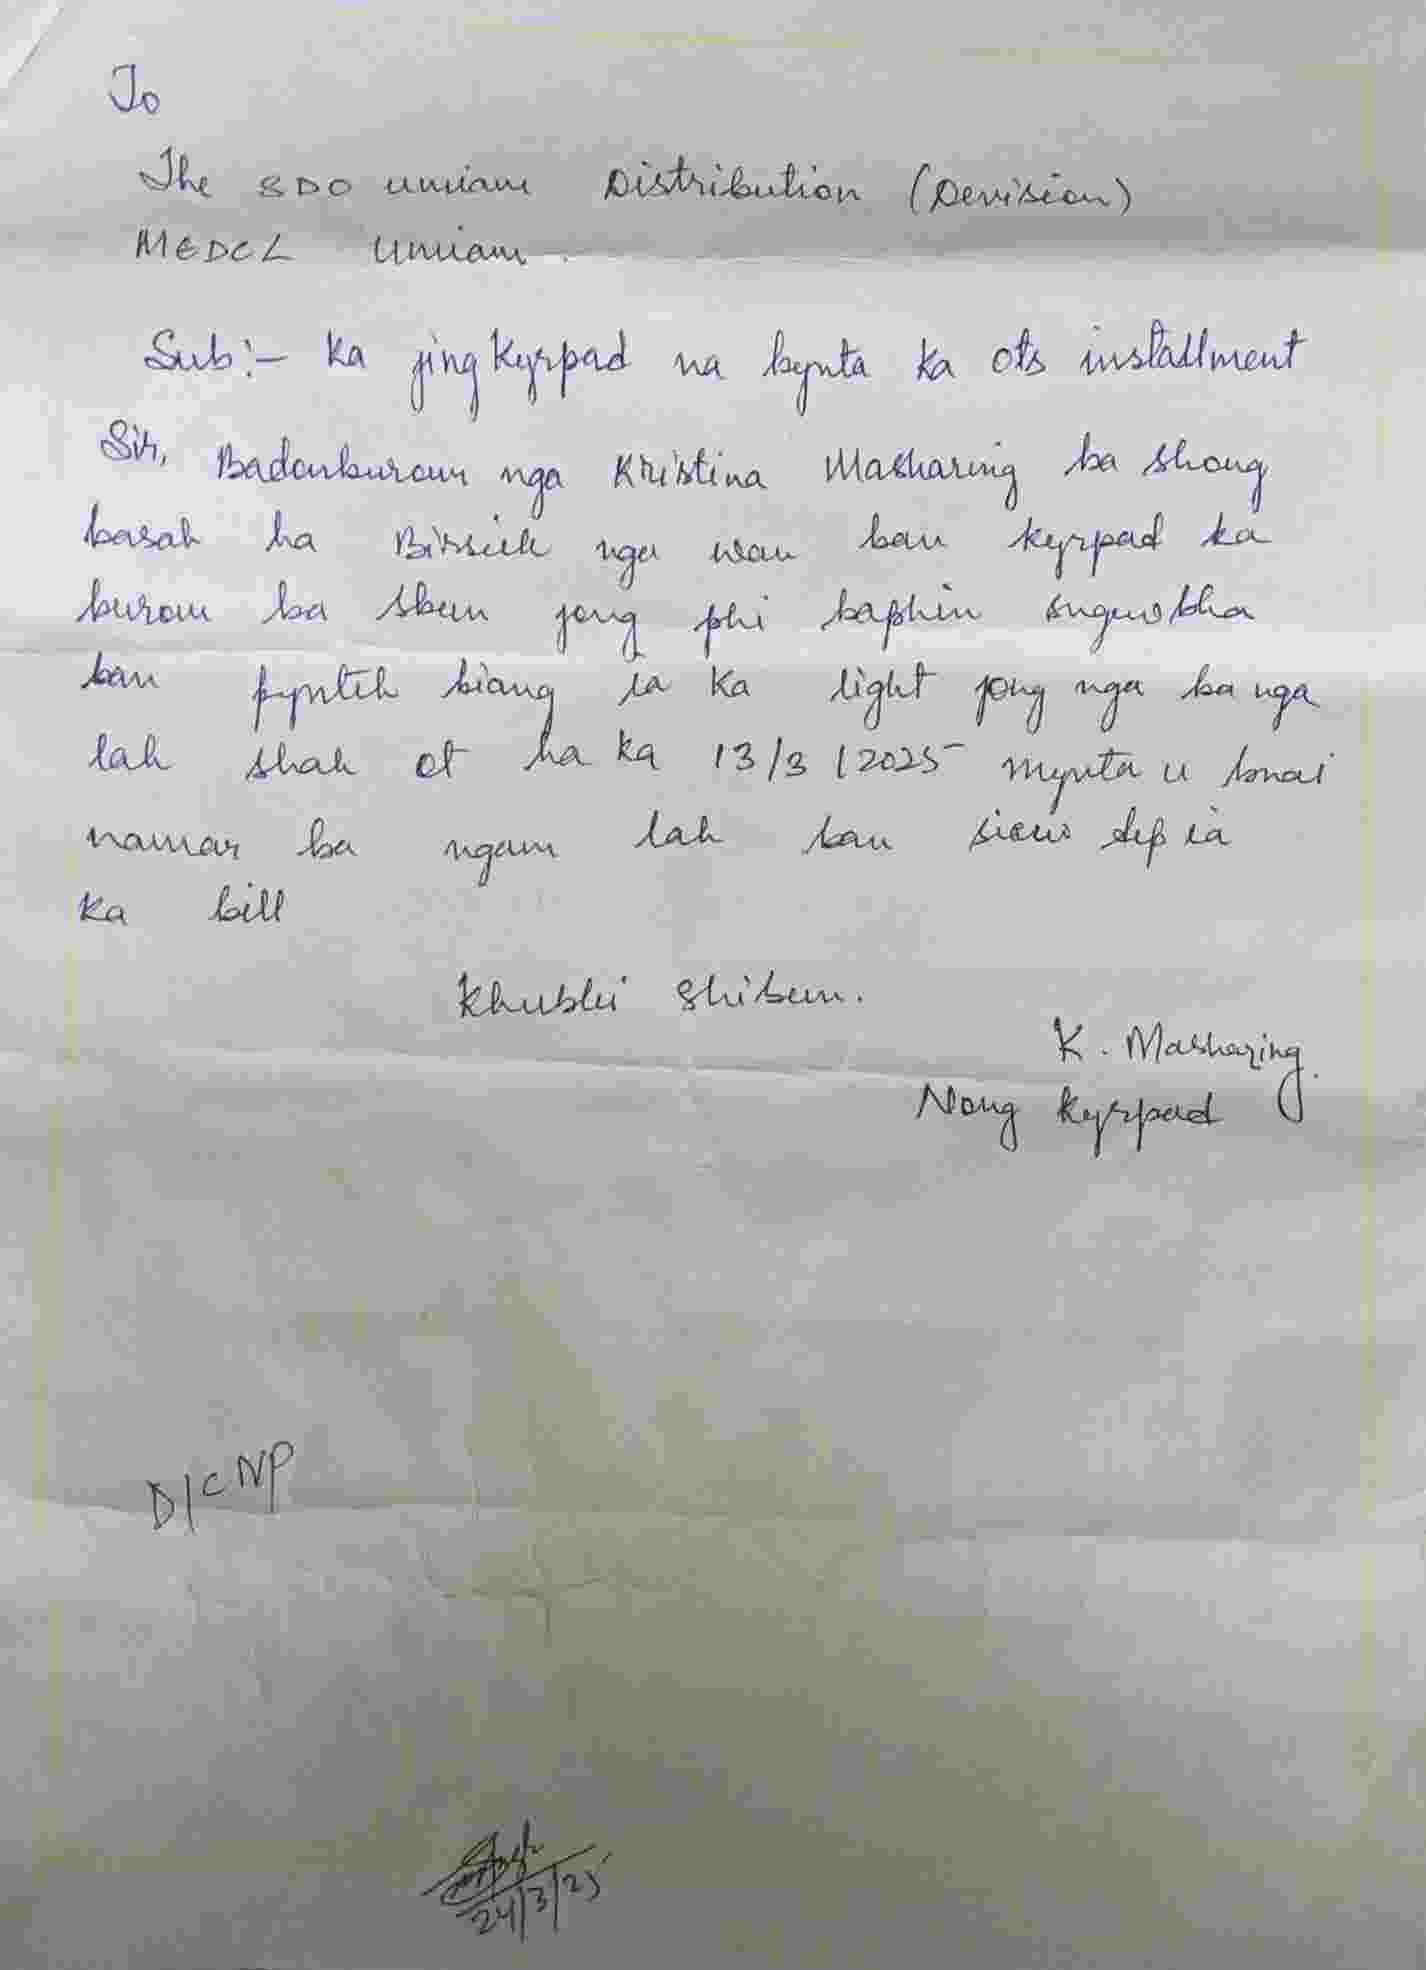 To
The SDO Umiam Distribution (Devision)
MEDCL Umiam.
Sub:- Ka jingkyrpad na bynta ka ots installment
Sir, Badonburom nga Kristina Masharing ba shong
basah ha Birsieh nga wan ban kyrpad ka
burom ba skem jong phi baphin sngewbha
ban pynteh biang ia Ka light jong nga ba nga
lah shah ot ha ka 13/3/2025 mynta u bnai
namar ba ngam lah ban siew dep ia
Ka bill
Khublei shibun.
K. Masharing.
Nong kyrpad
D/C NP
24/3/25